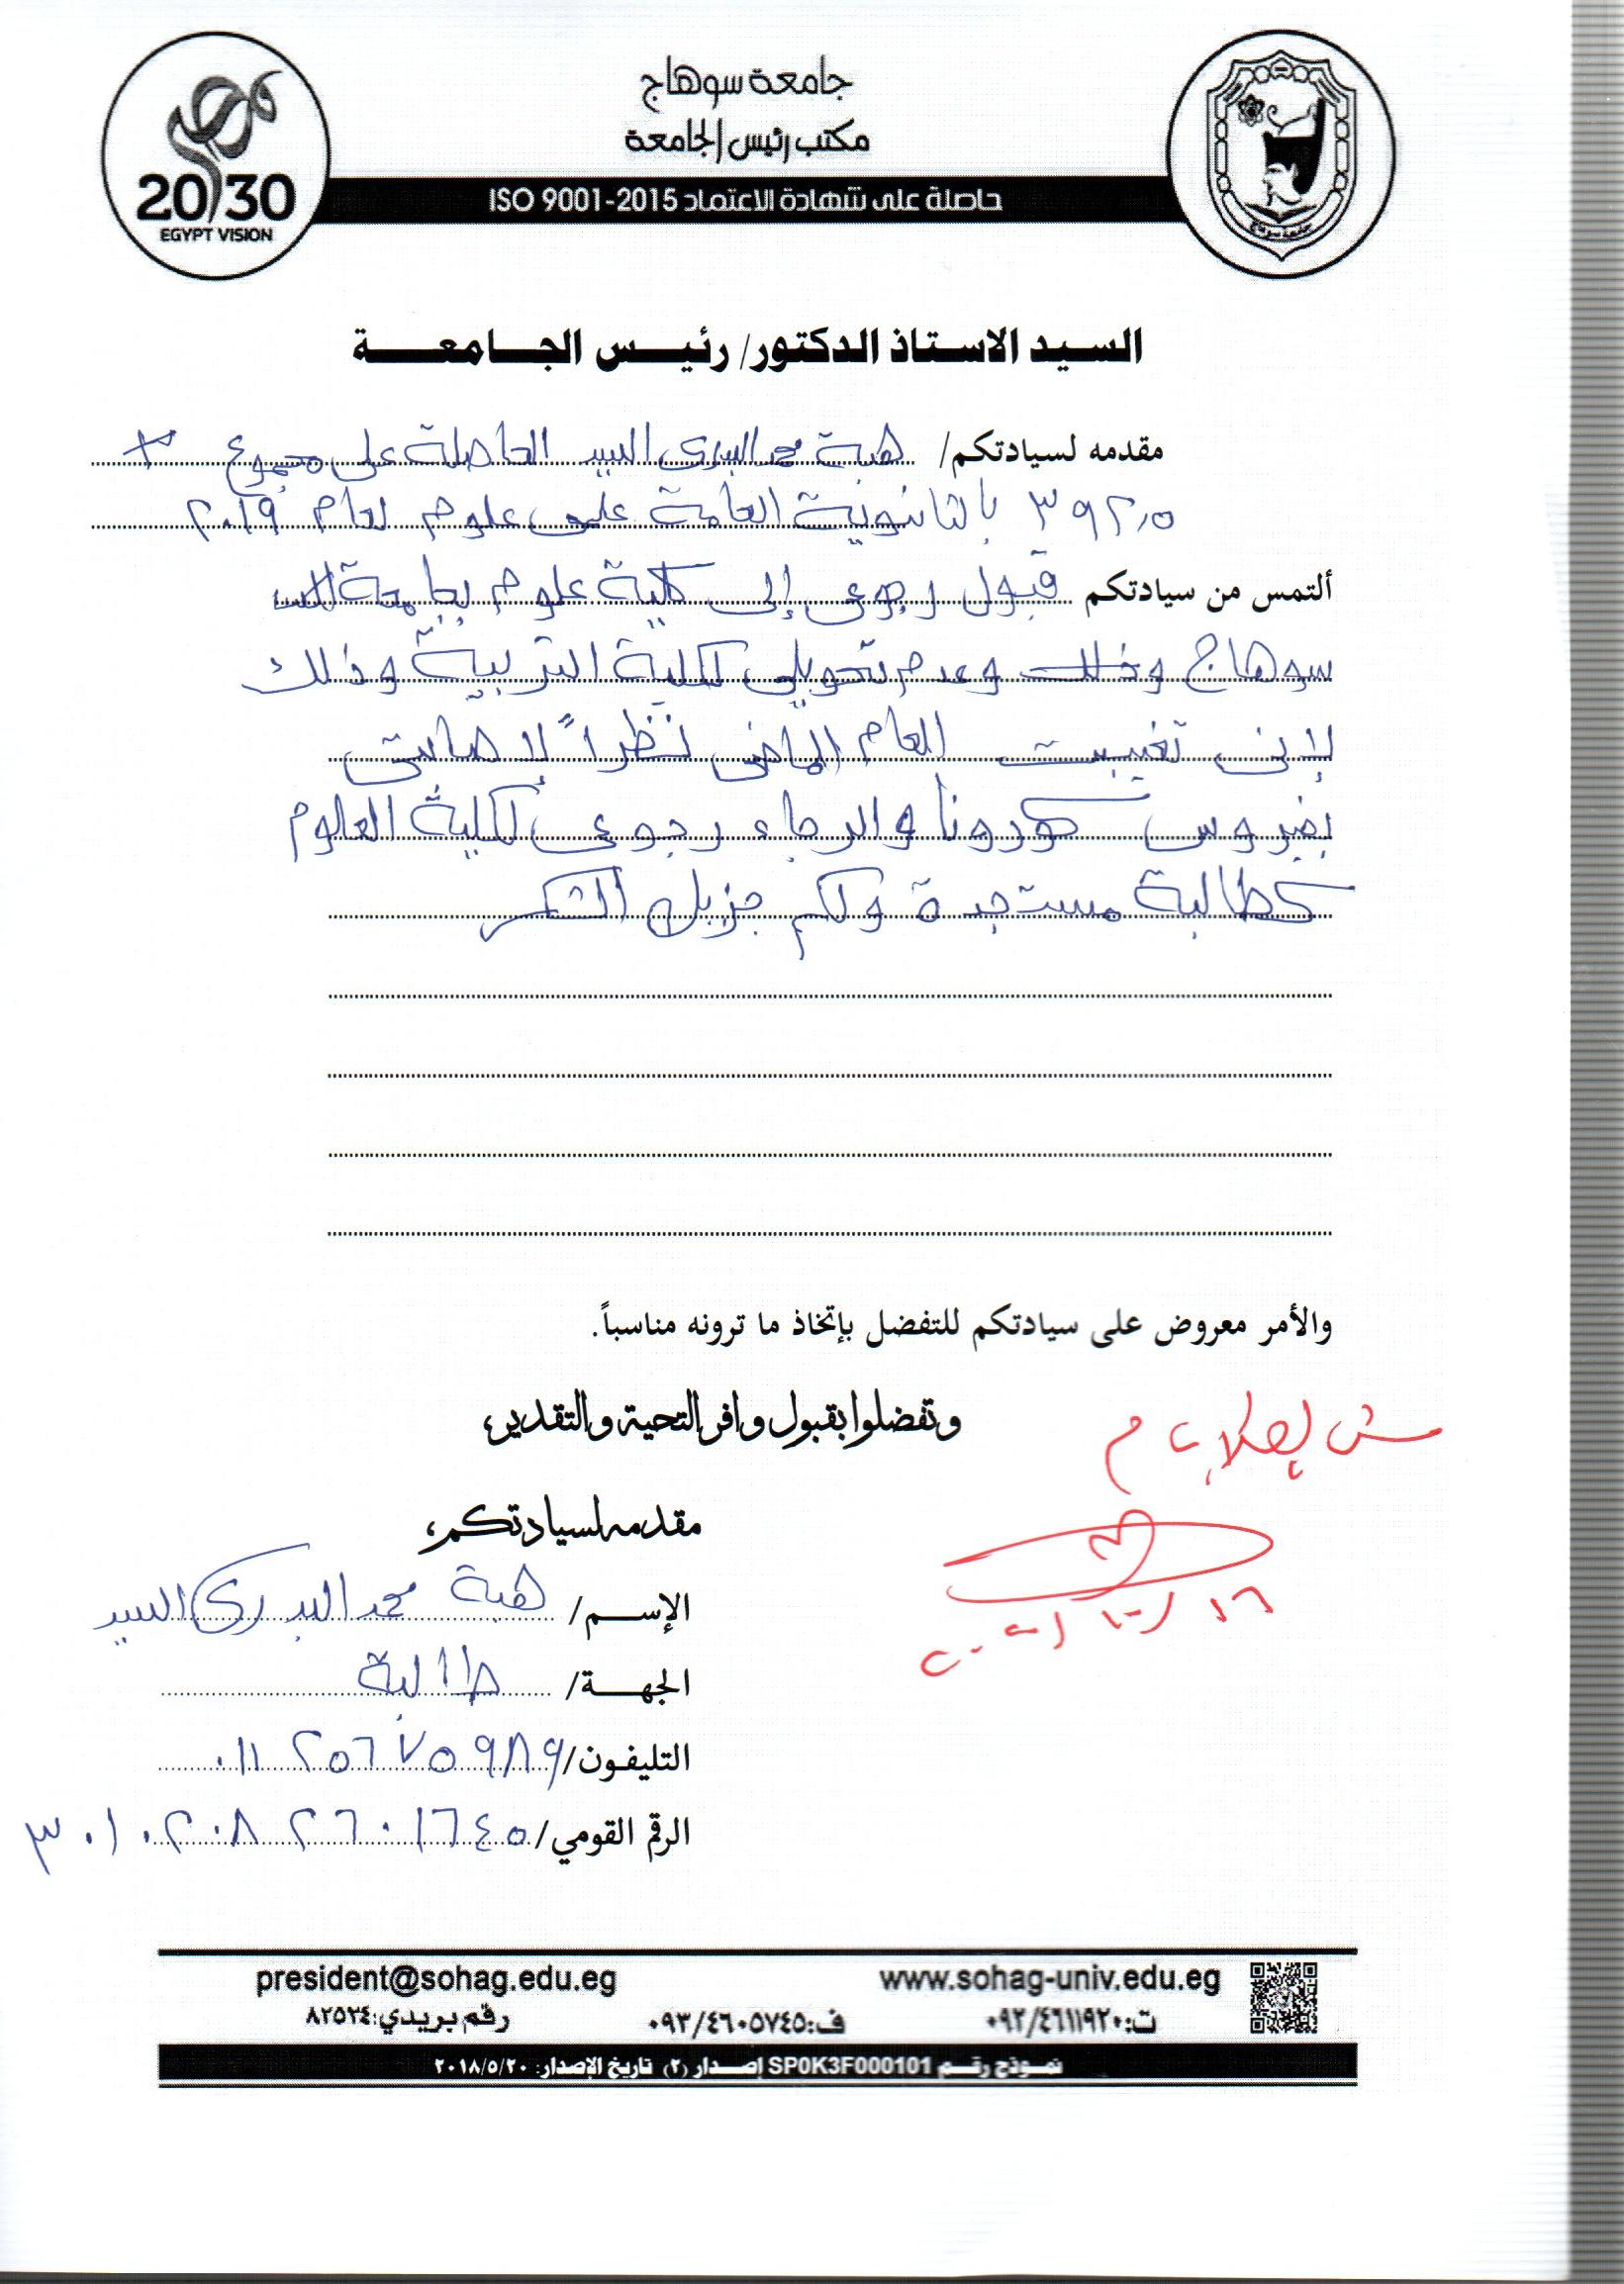 جامعة سوهاج
مكتب رئيس الجامعة
حاصلة على شهادة الاعتماد ISO 9001-2015
2030
EGYPT VISION
جامعة سوهاج
السيد الاستاذ الدكتور/ رئيس الجامعة
مقدمه لسيادتكم/ هبة محمد البدرى السيد الحاصلة على مجموع
٣٩٢,٥ بالثانوية العامة علمى علوم لعام ٢٠١٩
ألتمس من سيادتكم قبول رجوعى إلى كلية علوم بجامعة
سوهاج وذلك وعدم تحويلى لكلية التربية وذلك
لإنى تغيبت العام الماضى نظراً لإصابتى
بفيروس كورونا والرجاء رجوعى لكلية العلوم
كطالبة مستجدة ولكم جزيل الشكر
والأمر معروض على سيادتكم للتفضل بإتخاذ ما ترونه مناسباً.
وتفضلوا بقبول وافر التحية والتقدير،
مقدمه لسيادتكم،
الإسم/ هبة محمد البدرى السيد
الجهة/ طالبة
التليفون/ ٠١١٢٥٦٧٥٩٨٩
الرقم القومي/ ٣٠١٠٢٠٨٢٦٠١٦٤٥
president@sohag.edu.eg www.sohag-univ.edu.eg
ت:٠٩٣/٤٦١١٩٢٠ ف:٠٩٣/٤٦٠٥٧٤٥ رقم بريدي:٨٢٥٢٤
نموذج رقم SP0K3F000101 إصدار (٢) تاريخ الإصدار: ٢٠١٨/٥/٢٠